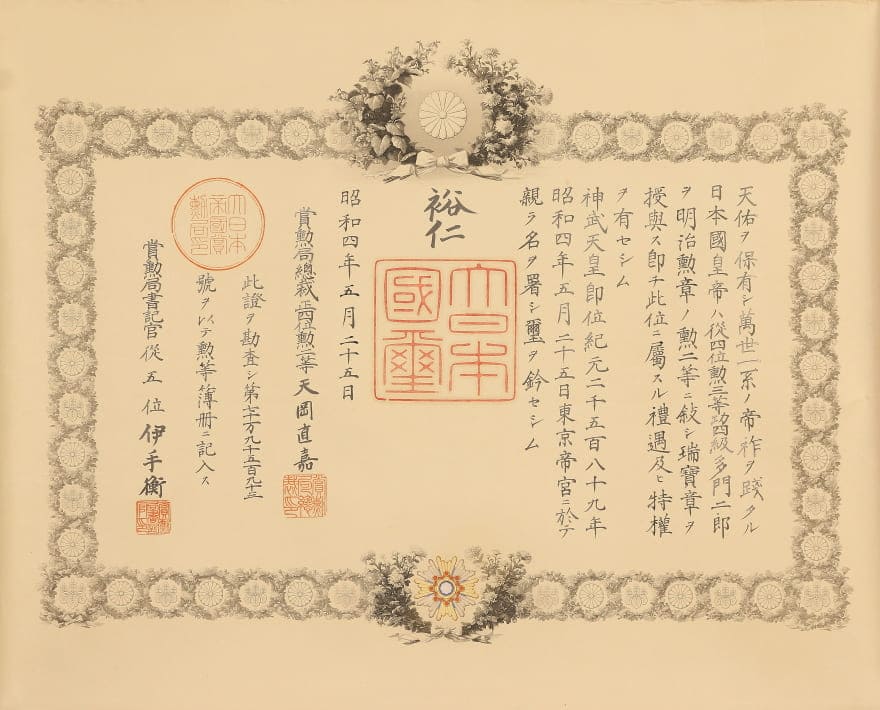 天佑ヲ保有シ萬世一系ノ帝祚ヲ踐タル
日本國皇帝ハ從四位勲三等功四級多門二郎
ヲ明治勲章ノ勲二等ニ敍シ瑞寶章ヲ
授與ス即チ此位ニ屬スル禮遇及ヒ特權
ヲ有セシム
神武天皇即位紀元二千五百八十九年
昭和四年五月二十五日東京帝宮ニ於テ
親ラ名ヲ署シ璽ヲ鈐セシム
裕仁
大日本
國璽
昭和四年五月二十五日
賞勲局總裁正四位勲二等天岡直嘉
此證ヲ勘査シ第七十万九千五百九十三
號ヲ以テ勲等簿册ニ記入ス
大日本
帝國賞
勲局印
賞勲局書記官從五位伊手衡